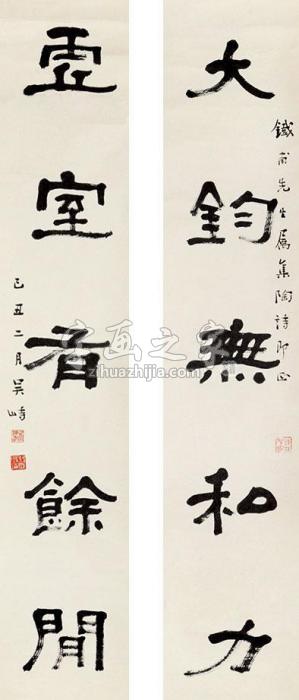 鐵甫先生屬集陶詩即正
大鈞無私力
虛室有餘閒
己丑二月吳峙
字画之家
zihuazhijia.com